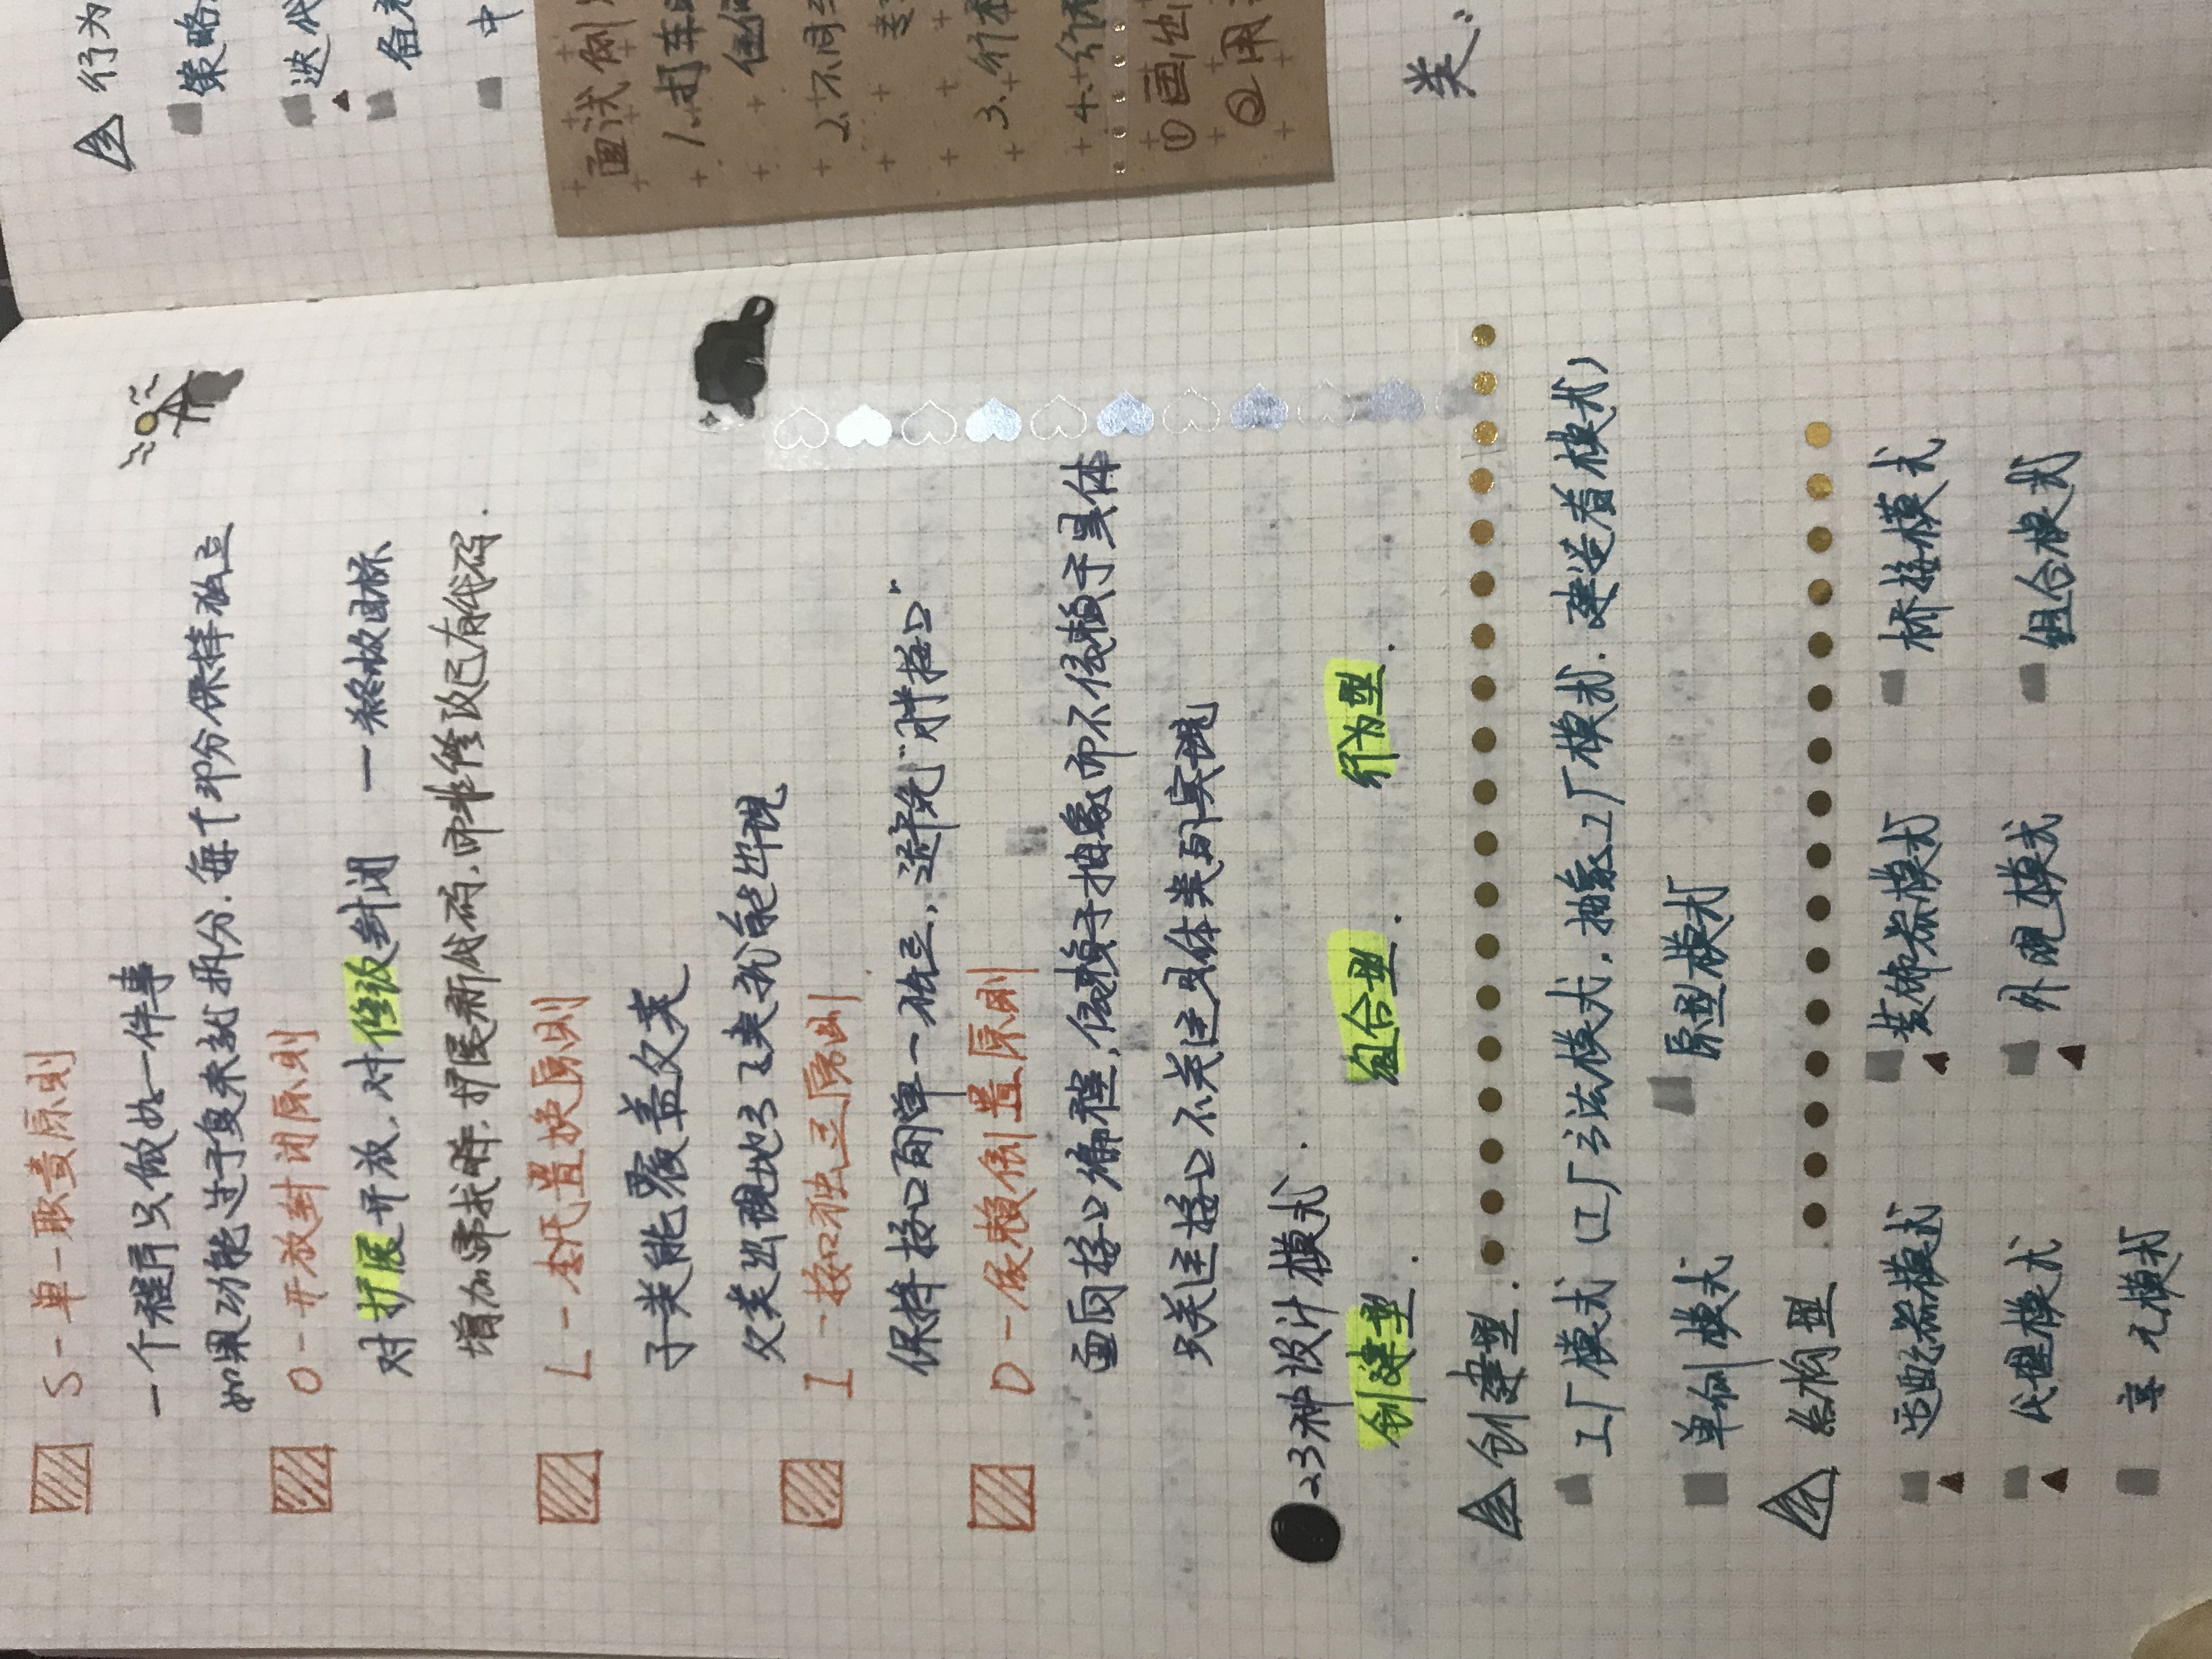 S-单一职责原则
一个程序只做好一件事
如果功能过于复杂就拆分.每个部分保持独立
O-开放封闭原则
对扩展开放,对修改封闭 一终极目标
增加需求时,扩展新代码,而非修改已有代码.
L-李氏置换原则
子类能覆盖父类
父类出现地方子类就能出现
I-接口独立原则
保持接口的单一独立,避免"胖接口"
D-依赖倒置原则
面向接口编程,依赖于抽象而不依赖于具体
只关注接口不关注具体类的实现
23种设计模式.
创建型. 组合型. 行为型.
创建型.
工厂模式(工厂方法模式.抽象工厂模式.建造者模式)
单例模式 原型模式
结构型
适配器模式 装饰器模式 桥接模式
代理模式 外观模式 组合模式
享元模式
行为
策略
迭代
备
中
面试例
1.打车
任何
2.不同
专
3.行
4.行
①画出
②用
类